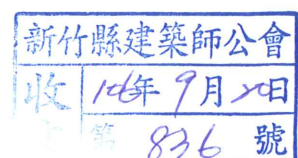 新竹縣建築師公會
收 106年9月20日
文 第 836 號